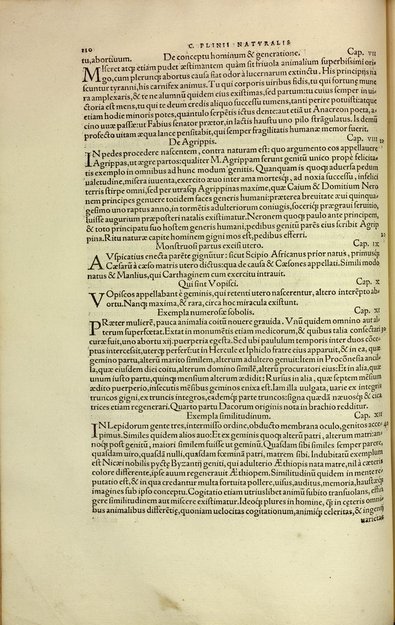 110 C. PLINII NATVRALIS
tu, abortiuum. De conceptu hominum & generatione. Cap. VII
Miseret atq; etiam pudet æstimantem quàm sit friuola animalium superbissimi ori
go, cum plerunq; abortus causa fiat odor à lucernarum extinctu. His principijs na
scuntur tyranni, his carnifex animus. Tu qui corporis uiribus fidis, tu qui fortunæ mune
ra amplexaris, & te ne alumnũ quidem eius existimas, sed partum: tu cuius semper in ui
ctoria est mens, tu qui te deum credis aliquo successu tumens, tanti perire potuisti: atque
etiam hodie minoris potes, quantulo serpẽtis ictus dente: aut etiã ut Anacreon poeta, a
cino uuæ passæ: ut Fabius senator prætor, in lactis haustu uno pilo strãgulatus. Is demũ
profecto uitam æqua lance pensitabit, qui semper fragilitatis humanæ memor fuerit.
De Agrippis. Cap. VIII
IN pedes procedere nascentem, contra naturam est: quo argumento eos appellauere
Agrippas, ut ægre partos: qualiter M. Agrippam ferunt genitũ unico propè felicita
tis exemplo in omnibus ad hunc modum genitis. Quanquam is quoq; aduersa pedum
ualetudine, misera iuuenta, exercito æuo inter arma mortesq;, ad noxia successu, infelici
terris stirpe omni, sed per utrasq; Agrippinas maxime, quæ Caium & Domitium Nero
nem principes genuere totidem faces generis humani: præterea breuitate æui quinqua-
gesimo uno raptus anno, in tormentis adulteriorum coniugis, socerique prægraui seruitio,
luisse augurium præposteri natalis existimatur. Neronem quoq; paulo ante principem,
& toto principatu suo hostem generis humani, pedibus genitũ parens eius scribit Agrip
pina. Ritu naturæ capite hominem gigni mos est, pedibus efferri.
Monstruosi partus excisi utero. Cap. IX
AVspicatius enecta parẽte gignũtur: sicut Scipio Africanus prior natus, primusq;
Cæsarũ à cæso matris utero dictus: qua de causa & Cæsones appellati. Simili modo
natus & Manlius, qui Carthaginem cum exercitu intrauit.
Qui sint Vopisci. Cap. X
VOpiscos appellabant è geminis, qui retenti utero nascerentur, altero interẽpto ab-
ortu. Nanq; maxima, & rara, circa hoc miracula existunt.
Exempla numerosæ sobolis. Cap. XI
PRæter mulierẽ, pauca animalia coitũ nouere grauida. Vnũ quidem omnino aut al-
terum superfœtat. Extat in monumẽtis etiam medicorum, & quibus talia consectari
curæ fuit, uno abortu xij. puerperia egesta. Sed ubi paululum temporis inter duos cõce-
ptus intercessit, uterq; perfertur: ut in Hercule et Iphiclo fratre eius apparuit, & in ea, quæ
gemino partu, alterũ marito similem, alterum adultero genuit: Item in Procõnesia ancil-
la, quæ eiusdem diei coitu, alterum domino similẽ, alterũ procuratori eius: Et in alia, quæ
unum iusto partu, quinq; mensium alterum ædidit: Rursus in alia, quæ septem mẽsium
ædito puerperio, insecutis mẽsibus geminos enixa est. Iam illa uulgata, uarie ex integris
truncos gigni, ex truncis integros, eademq; parte truncos: signa quædã næuosq; & cica
trices etiam regenerari. Quarto partu Dacorum originis nota in brachio redditur.
Exempla similitudinum. Cap. XII
IN Lepidorum gente tres, intermisso ordine, obducto membrana oculo, genitos acce-
pimus. Similes quidem alios auo: Et ex geminis quoq; alterũ patri, alterum matri: an-
noq; post genitũ, maiori similem fuisse ut geminũ. Quasdam sibi similes semper parere,
quasdam uiro, quasdã nulli, quasdam fœminã patri, marem sibi. Indubitatũ exemplum
est Nicæi nobilis pyctę Byzantij geniti, qui adulterio Æthiopis nata matre, nil à cæteris
colore differente, ipse auum regenerauit Æthiopem. Similitudinũ quidem in mente re-
putatio est, & in qua credantur multa fortuita pollere, uisus, auditus, memoria, haustæq;
imagines sub ipso conceptu. Cogitatio etiam utriuslibet animũ subito transuolans, effin
gere similitudinem aut miscere existimatur. Ideoq; plures in homine, q̃ in cęteris omni-
bus animalibus differẽtię, quoniam uelocitas cogitationum, animiq; celeritas, & ingenij
uarietas